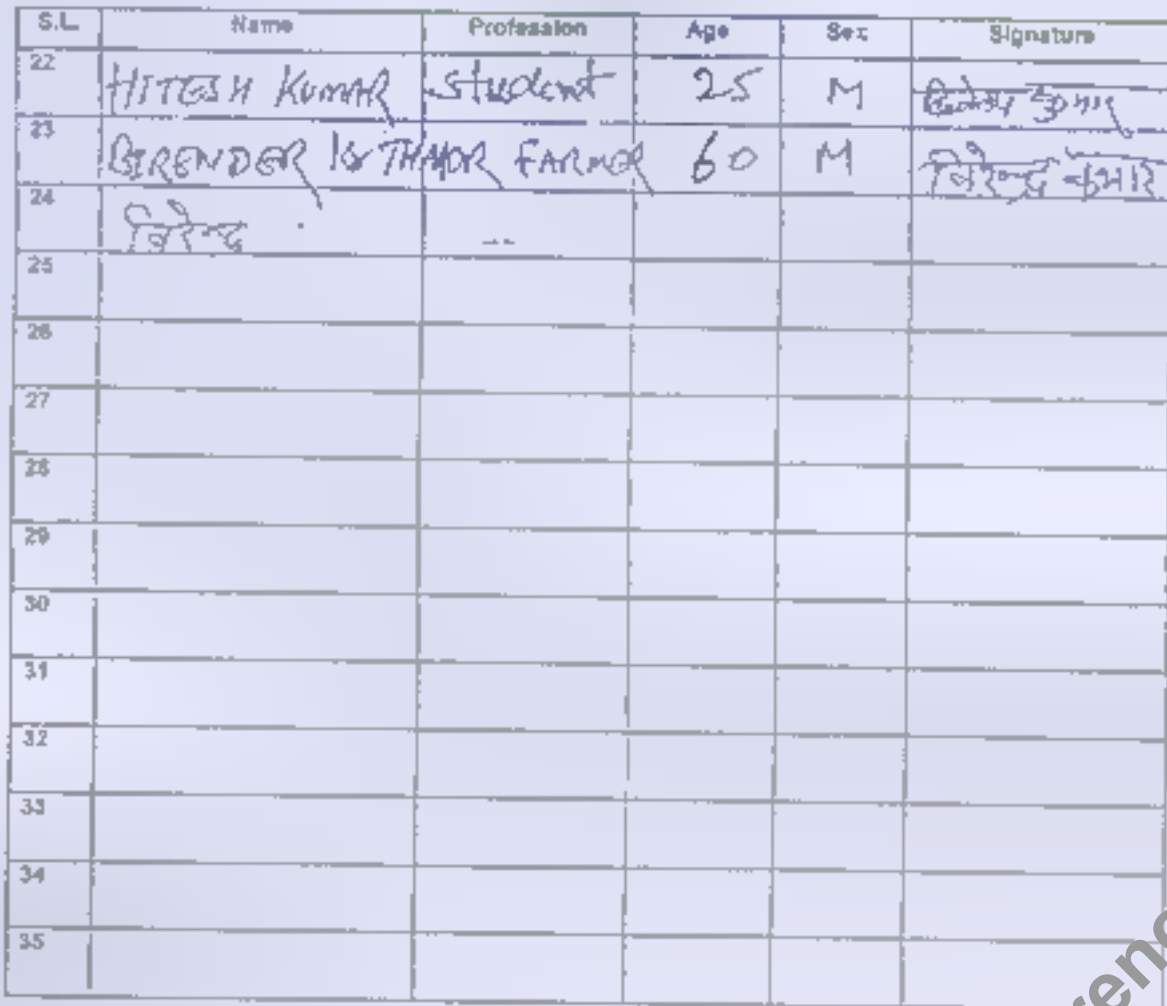 S.L. Name Profession Age Sex Signature
22 HITESH KUMAR Student 25 M हितेश कुमार
23 BIRENDER FARMER 60 M विरेन्द्र कुमार
24 विरेन्द्र
25
26
27
28
29
30
31
32
33
34
35